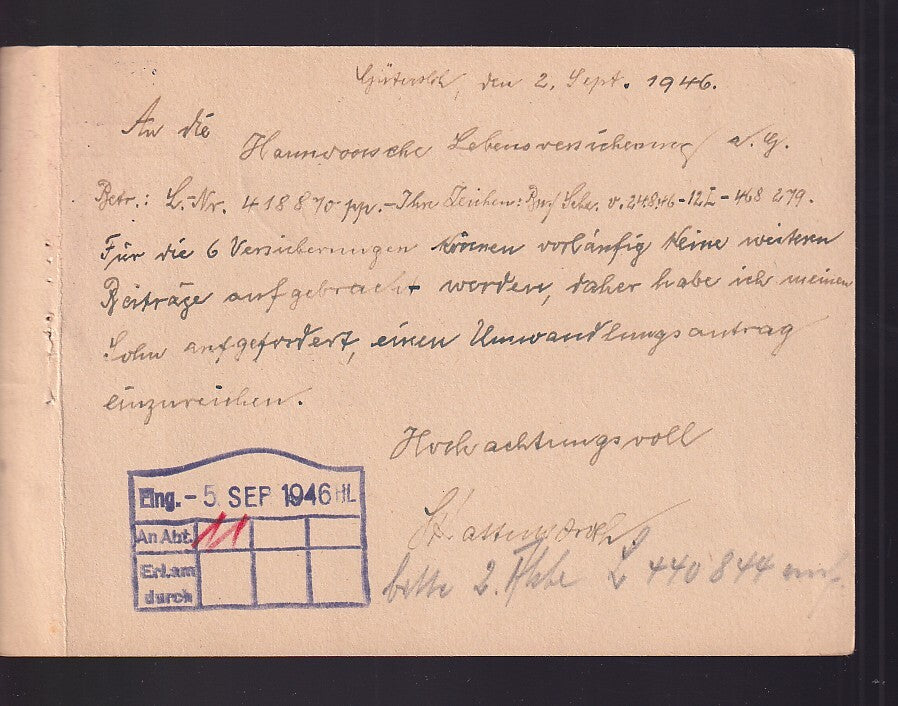 Gütersloh, den 2. Sept. 1946.
An die
Hannoversche Lebensversicherung a. G.
Betr.: L.-Nr. 418870 pp. - Ihre Zeichen: v. 24.8.46 - 12 I - 468 279.
Für die 6 Versicherungen können vorläufig keine weiteren
Beiträge aufgebracht werden, daher habe ich meinen
Sohn aufgefordert, einen Umwandlungsantrag
einzureichen.
Hochachtungsvoll
Eing. - 5. SEP. 1946 HL
An Abt. 11
Erl. am
durch
bitte 2. L 440 844